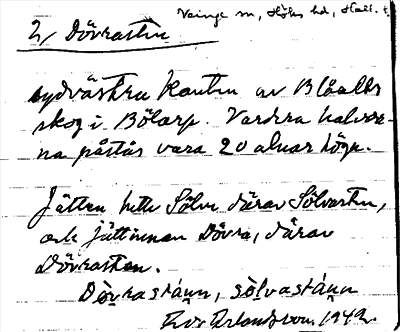 Veinge sn, Höks hd, Hall.
2, Dövrasten
sydvästra kanten av Blåalts
skog i Bölarp. Vardera halvor-
na påstås vara 20 alnar höga.
Jätten hette Sölve därav Sölvasten,
och jättinnan Dövra, därav
Dövrasten.
Dövrastáinn, Sölvastáinn
Arlandsson 1942.